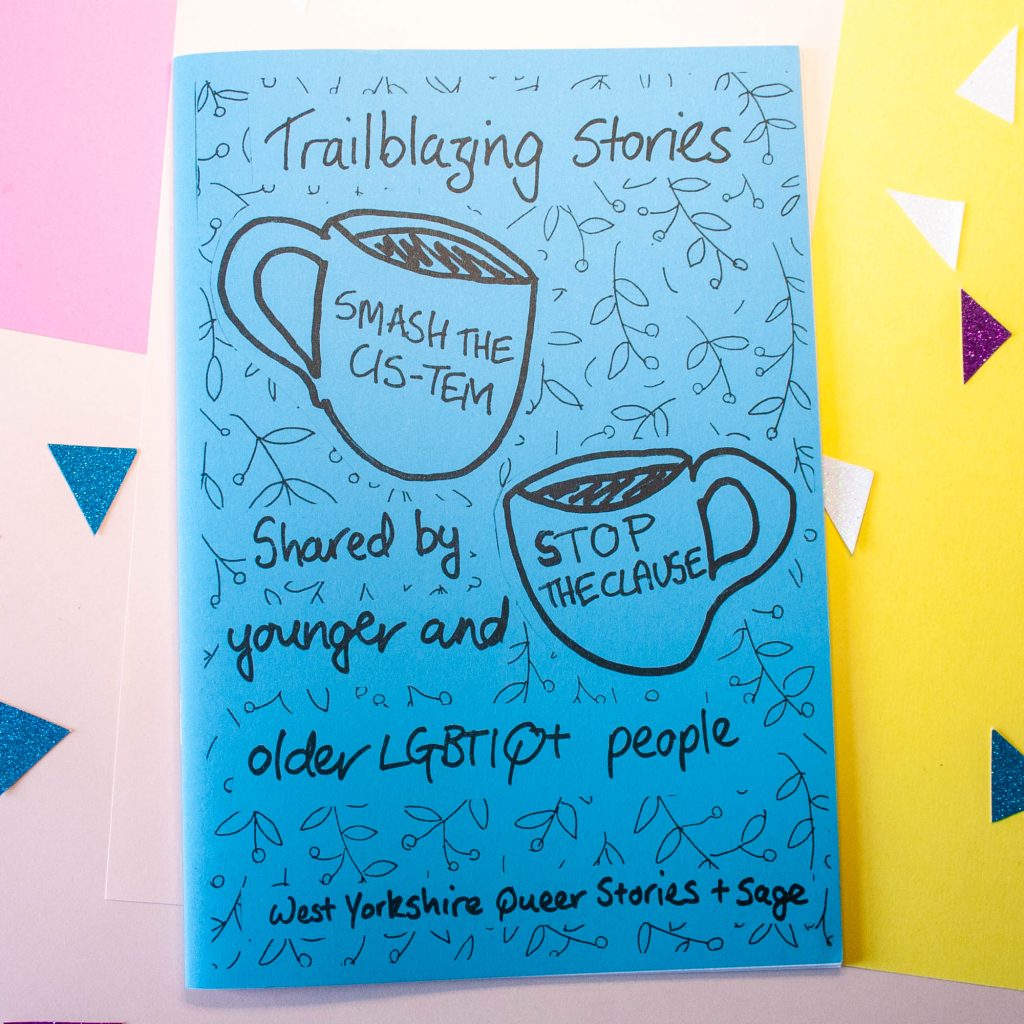 Trailblazing Stories
SMASH THE
CIS-TEM
Shared by
younger and
STOP
THE CLAUSE
older LGBTIQ+ people
West Yorkshire Queer Stories + Sage